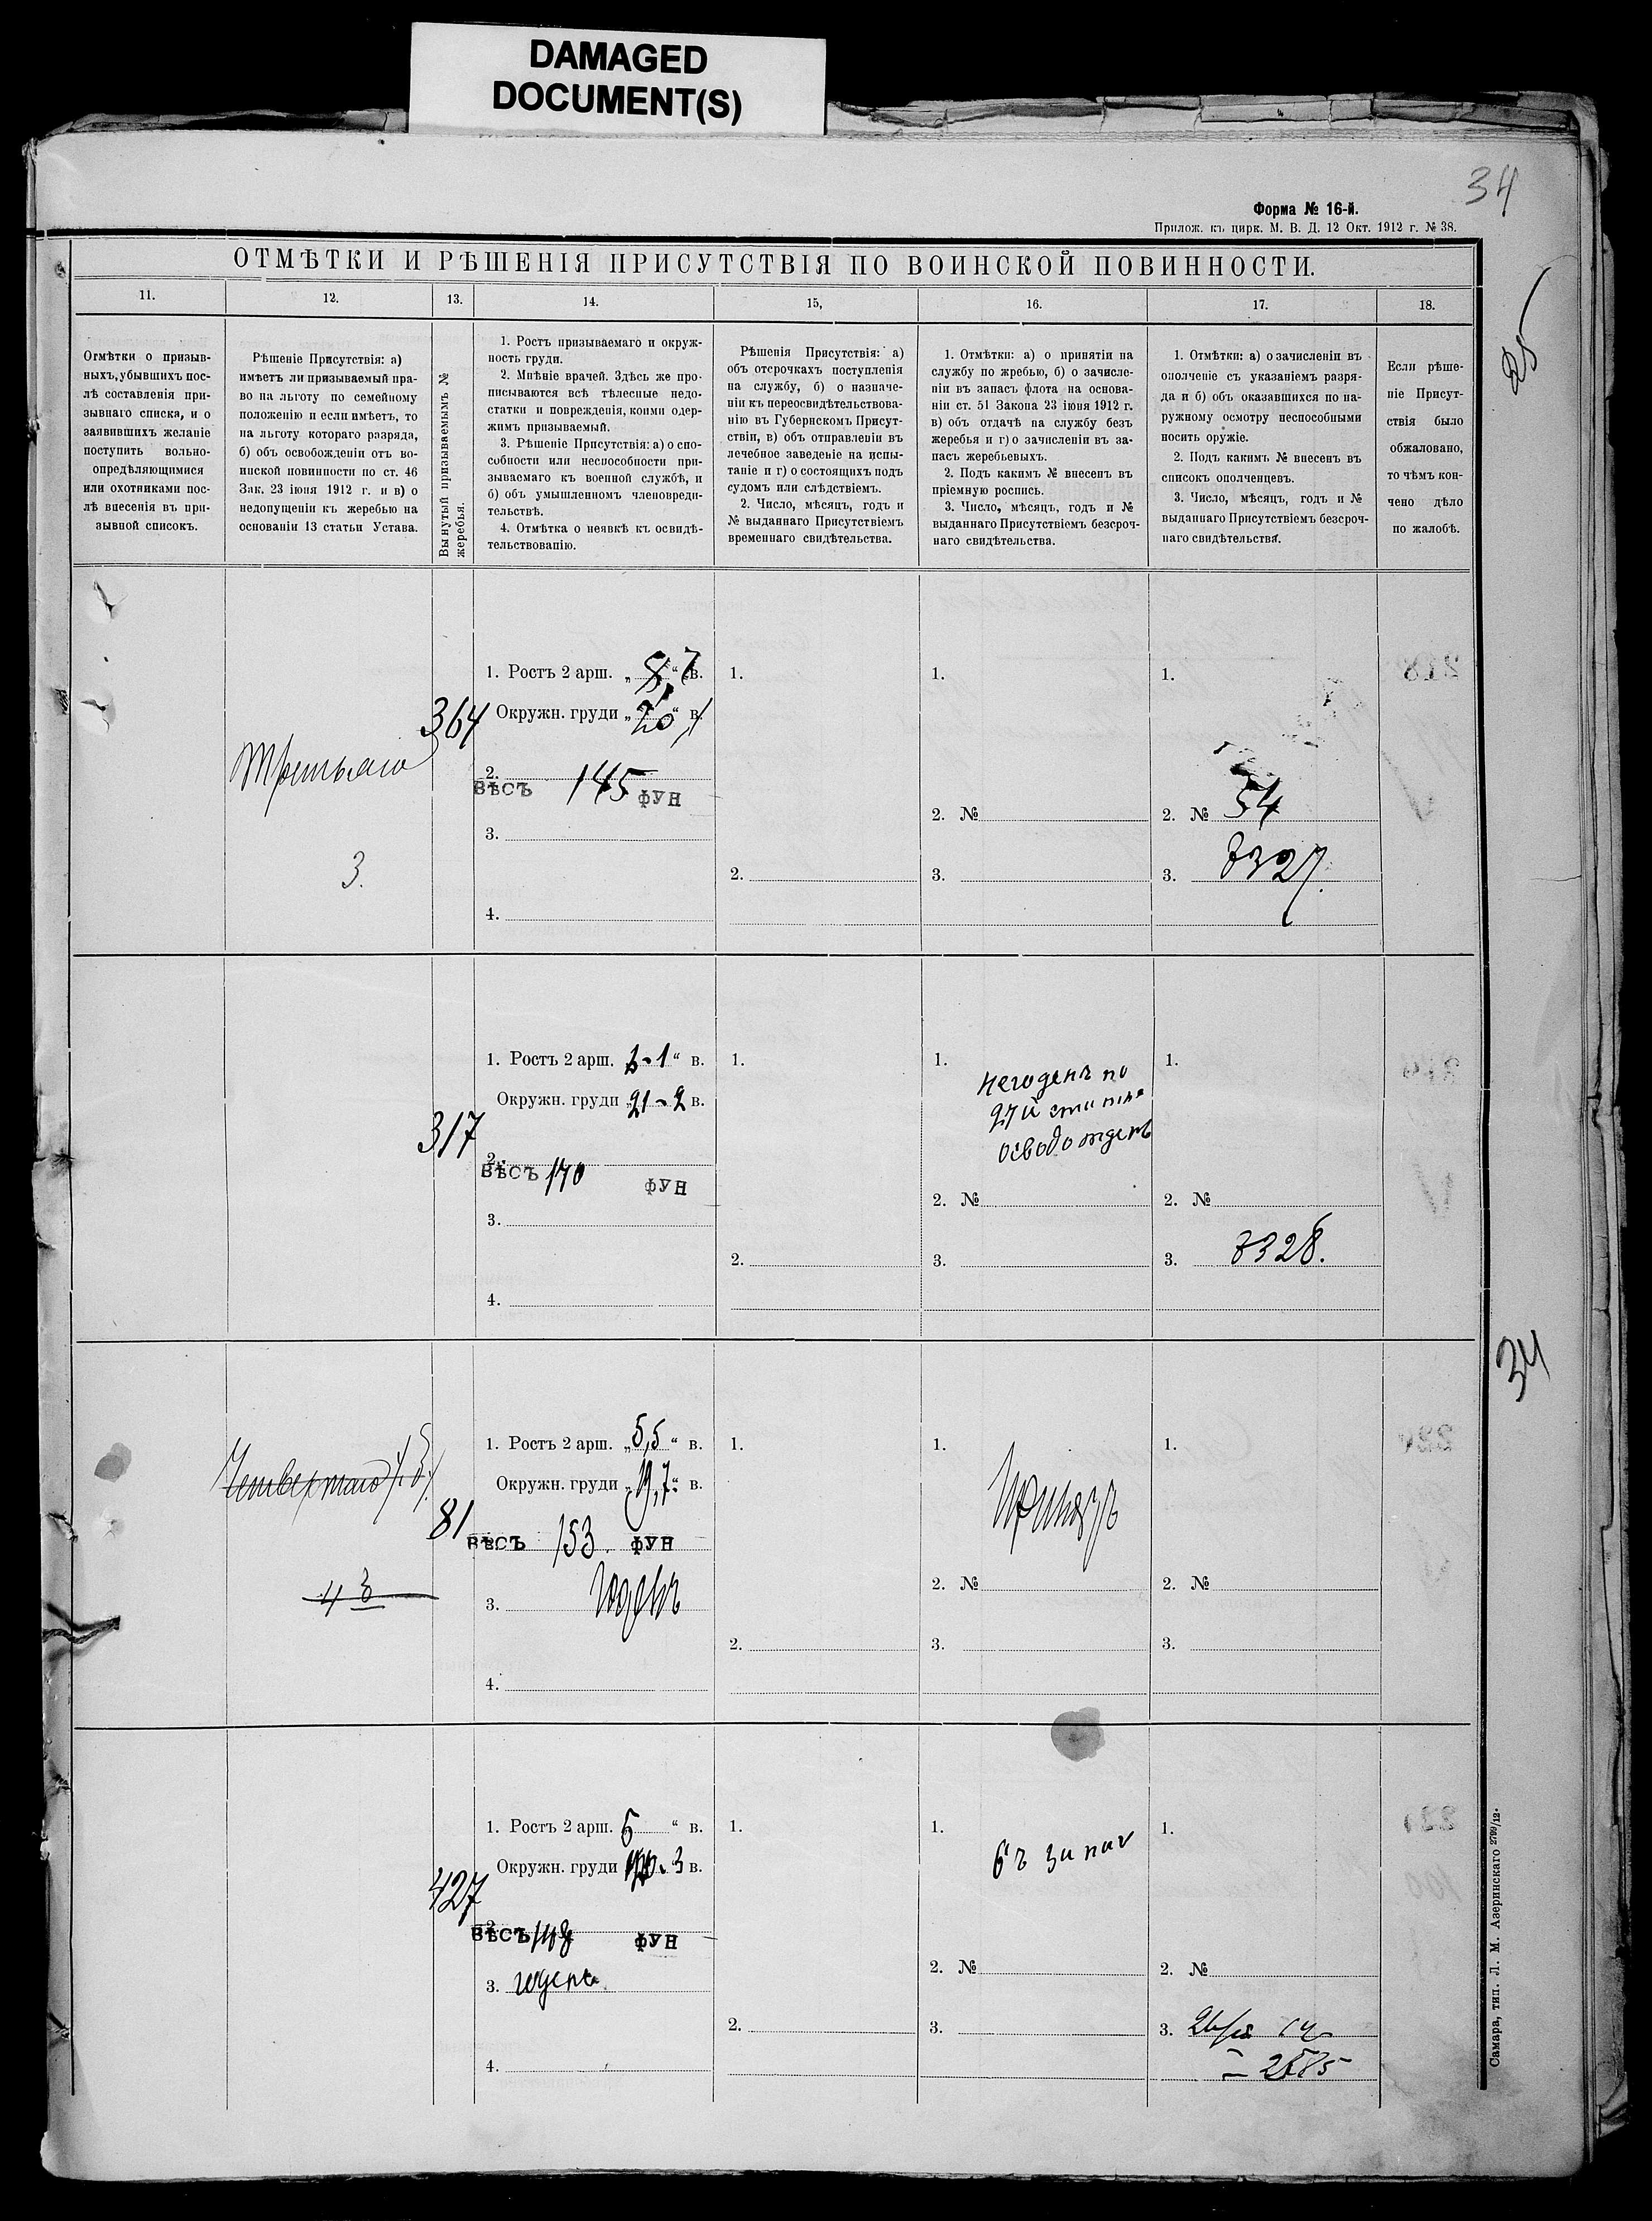 DAMAGED
DOCUMENT(S)
34
Форма № 16-й.
Прилож. къ цирк. М. В. Д. 12 Окт. 1912 г. № 38.
ОТМѢТКИ И РѢШЕНІЯ ПРИСУТСТВІЯ ПО ВОИНСКОЙ ПОВИННОСТИ.
11.
12.
13.
14.
15,
16.
17.
18.
Отмѣтки о призыв-
ныхъ, убывшихъ пос-
лѣ составленія при-
зывнаго списка, и о
заявившихъ желаніе
поступить вольно-
опредѣляющимися
или охотниками пос-
лѣ внесенія въ при-
зывной список.
Рѣшеніе Присутствія: а)
имѣетъ ли призываемый пра-
во на льготу по семейному
положенію и если имѣетъ, то
на льготу котораго разряда,
б) объ освобожденіи отъ во-
инской повинности по ст. 46
Зак. 23 іюня 1912 г. и в) о
недопущеніи къ жеребью на
основаніи 13 статьи Устава.
Вынутый призываемымъ №
жеребья.
1. Ростъ призываемаго и окруж-
ность груди.
2. Мнѣніе врачей. Здѣсь же про-
писываются всѣ тѣлесные недо-
статки и поврежденія, коими одер-
жимъ призываемый.
3. Рѣшеніе Присутствія: а) о спо-
собности или неспособности при-
зываемаго къ военной службѣ, и
б) объ умышленномъ членовреди-
тельствѣ.
4. Отмѣтка о неявкѣ къ освидѣ-
тельствованію.
Рѣшенія Присутствія: а)
объ отсрочкахъ поступленія
на службу, б) о назначе-
ніи къ переосвидѣтельствова-
нію въ Губернскомъ Присут-
ствіи, в) объ отправленіи въ
лечебное заведеніе на испы-
таніе и г) о состоящихъ подъ
судомъ или слѣдствіемъ.
2. Число, мѣсяцъ, годъ и
№ выданнаго Присутствіемъ
временнаго свидѣтельства.
1. Отмѣтки: а) о принятіи на
службу по жребью, б) о зачисле-
ніи въ запасъ флота на основа-
ніи ст. 51 Закона 23 іюня 1912 г.
в) объ отдачѣ на службу безъ
жеребья и г) о зачисленіи въ за-
пасъ жеребьевыхъ.
2. Подъ какимъ № внесенъ въ
пріемную роспись.
3. Число, мѣсяцъ, годъ и №
выданнаго Присутствіемъ безсроч-
наго свидѣтельства.
1. Отмѣтки: а) о зачисленіи въ
ополченіе съ указаніемъ разря-
да и б) объ оказавшихся по на-
ружному осмотру неспособными
носить оружіе.
2. Подъ какимъ № внесенъ въ
списокъ ополченцевъ.
3. Число, мѣсяцъ, годъ и №
выданнаго Присутствіемъ безсроч-
наго свидѣтельства.
Если рѣше-
ніе Присут-
ствія было
обжаловано,
то чѣмъ кон-
чено дѣло
по жалобѣ.
25
Третьяго
3.
364
1. Ростъ 2 арш. „8,7“ в.
Окружн. груди „20“ в.
2.
ВѢСЪ 145 ФУН
3.
4.
1.
2.
1.
2. №
3.
1.
2. № 54
3. 7327.
317
1. Ростъ 2 арш. 6-1“ в.
Окружн. груди „21-2 в.
2.
ВѢСЪ 170 ФУН
3.
4.
1.
2.
1. негоденъ по
27й статье
освобожденъ
2. №
3.
1.
2. №
3. 7328.
34
Четвертаго
4 3
81
1. Ростъ 2 арш. „5,5“ в.
Окружн. груди „19,7“ в.
ВѢСЪ 153. ФУН
3. годенъ
4.
1.
2.
1. Принятъ
2. №
3.
1.
2. №
3.
427
1. Ростъ 2 арш. 6 “ в.
Окружн. груди 20-3 в.
2.
ВѢСЪ 148 ФУН
3. годенъ
4.
1.
2.
1. въ запас
2. №
3.
1.
2. №
3.
2585
Самара, тип. Л. М. Азеринскаго 2799/12.